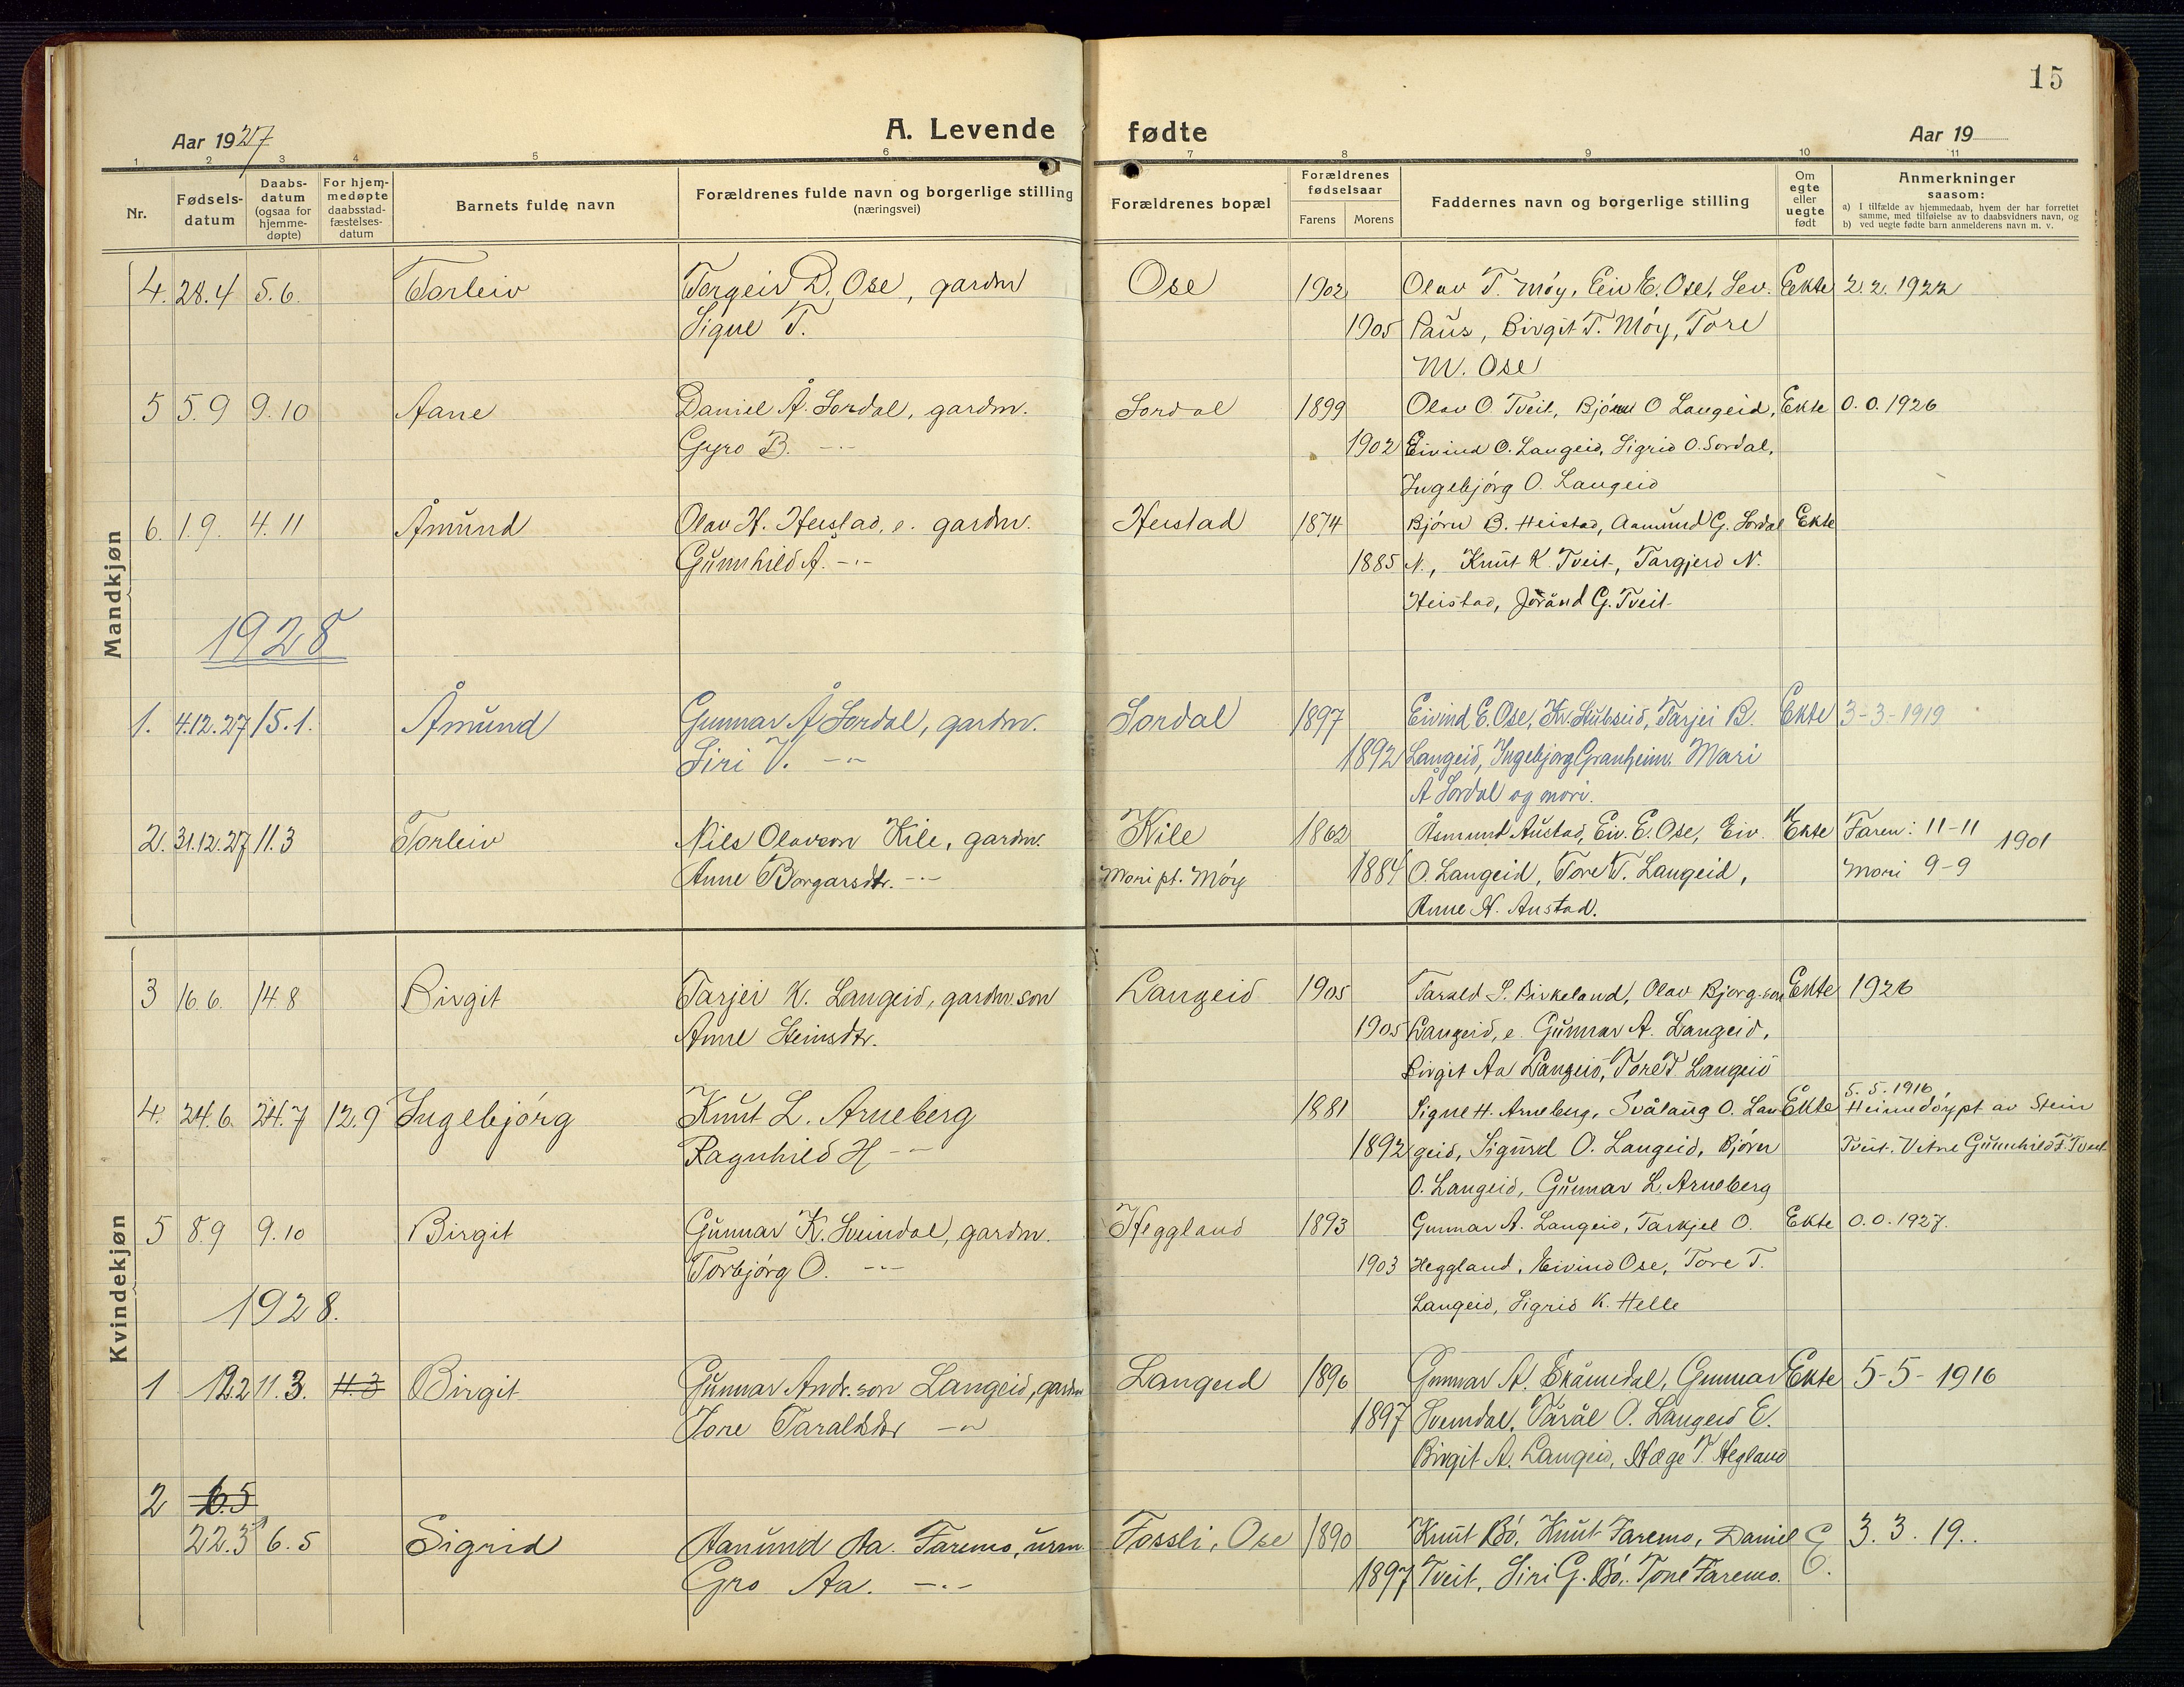 15
Aar 1927
A. Levende fødte
Aar 19
1 2 3 4 5 6 7 8 9 10 11
Nr.
Fødsels-datum
Daabs-datum (ogsaa for hjemme-døpte)
For hjem-medøpte daabsstad-fæstelses-datum
Barnets fulde navn
Forældrenes fulde navn og borgerlige stilling (næringsvei)
Forældrenes bopæl
Forældrenes fødselsaar
Farens Morens
Faddernes navn og borgerlige stilling
Om egte eller uegte født
Anmerkninger saasom:
a) I tilfælde av hjemmedaab, hvem der har forrettet samme, med tilføielse av to daabsvidners navn, og
b) ved uegte fødte barn anmelderens navn m. v.
Mandkjøn
4. 28.4 5.6. Torleiv Torgeir D. Ose, gardm Ose 1902 Olav T. Møy, Eiv E. Ose, Sev. Ekte 2.2. 1922
Signe T. 1905 Paus, Birgit T. Møy, Tore
M. Ose
5 5.9 9.10 Aane Daniel Å. Sordal, gardm. Sordal 1899 Olav O. Tveit, Bjørn O Langeid, Ekte 0.0.1926
Gyro B. -"- 1902 Eivind O. Langeid, Sigrid O. Sordal,
Ingebjørg O. Langeid
6. 1.9. 4.11 Åmund Olav H. Heistad, e. gardm. Heistad 1874 Bjørn B. Heistad, Aamund G. Sordal Ekte
Gunnhild A. -"- 1885 N., Knut K. Tveit, Targjerd N.
Heistad, Jorånd G. Tveit
1928
1. 4.12.27 15.1. Åmund Gunnar Å Sordal, gardm. Sordal 1897 Eivind E. Ose, Kr. Stubseid, Tarjei B. Ekte 3-3-1919
Siri V. -"- 1892 Langeid, Ingebjørg Granheim. Mari
Å Sordal og mori.
2. 31.12.27 11.3 Torleiv Nils Olavson Kile, gardm. Kile 1862 Åsmund Austad, Eiv. E. Ose, Eiv. Ekte Faren: 11-11 1901
Anne Borgarsdtr. -"- Mori pt. Møy 1884 O. Langeid, Tore T. Langeid, Mori 9-9
Anne H. Austad.
Kvindekjøn
3 16.6. 14.8 Birgit Tarjei K. Langeid, gardm.son Langeid 1905 Tarald S. Birkeland, Olav Bjorg.son Ekte 1926
Anne Steinsdtr. 1905 Langeid, e Gunnar A. Langeid,
Birgit Aa Langeid, Tore T Langeid
4. 24.6. 24.7 12.9 Ingebjørg Knut L. Arneberg 1881 Signe H. Arneberg, Svålaug O. Lan Ekte 5.5.1916 Heimedøypt av Stein
Ragnhild H -"- 1892 geid, Sigurd O. Langeid, Bjørn Tveit. Vitne Gunnhild T. Tveit
O. Langeid, Gunnar L. Arneberg
5 8.9 9.10 Birgit Gunnar K. Sveindal, gardm. Heggland 1893 Gunnar A. Langeid, Tarkjel O. Ekte 0.0.1927.
Torbjørg O. -"- 1903 Heggland, Eivind Ose, Tore T.
Langeid, Sigrid K. Helle
1928.
1 12.2 11.3. 11.3 Birgit Gunnar Andr.son Langeid, gardm Langeid 1896 Gunnar A. Skåmedal, Gunnar Ekte 5-5-1916
Tore Taraldsdtr -"- 1897 Sveindal, Tårål O. Langeid E.
Birgit A. Langeid, Hæge T. Hegland
2 6.5
22.3 6.5 Sigrid Aanund Aa. Faremo, urm. Fossli, Ose 1890 Knut Bø, Knut Faremo, Daniel E. 3.3.19..
Gro Aa. -"- 1897 Tveit, Siri G. Bø, Tone Faremo.